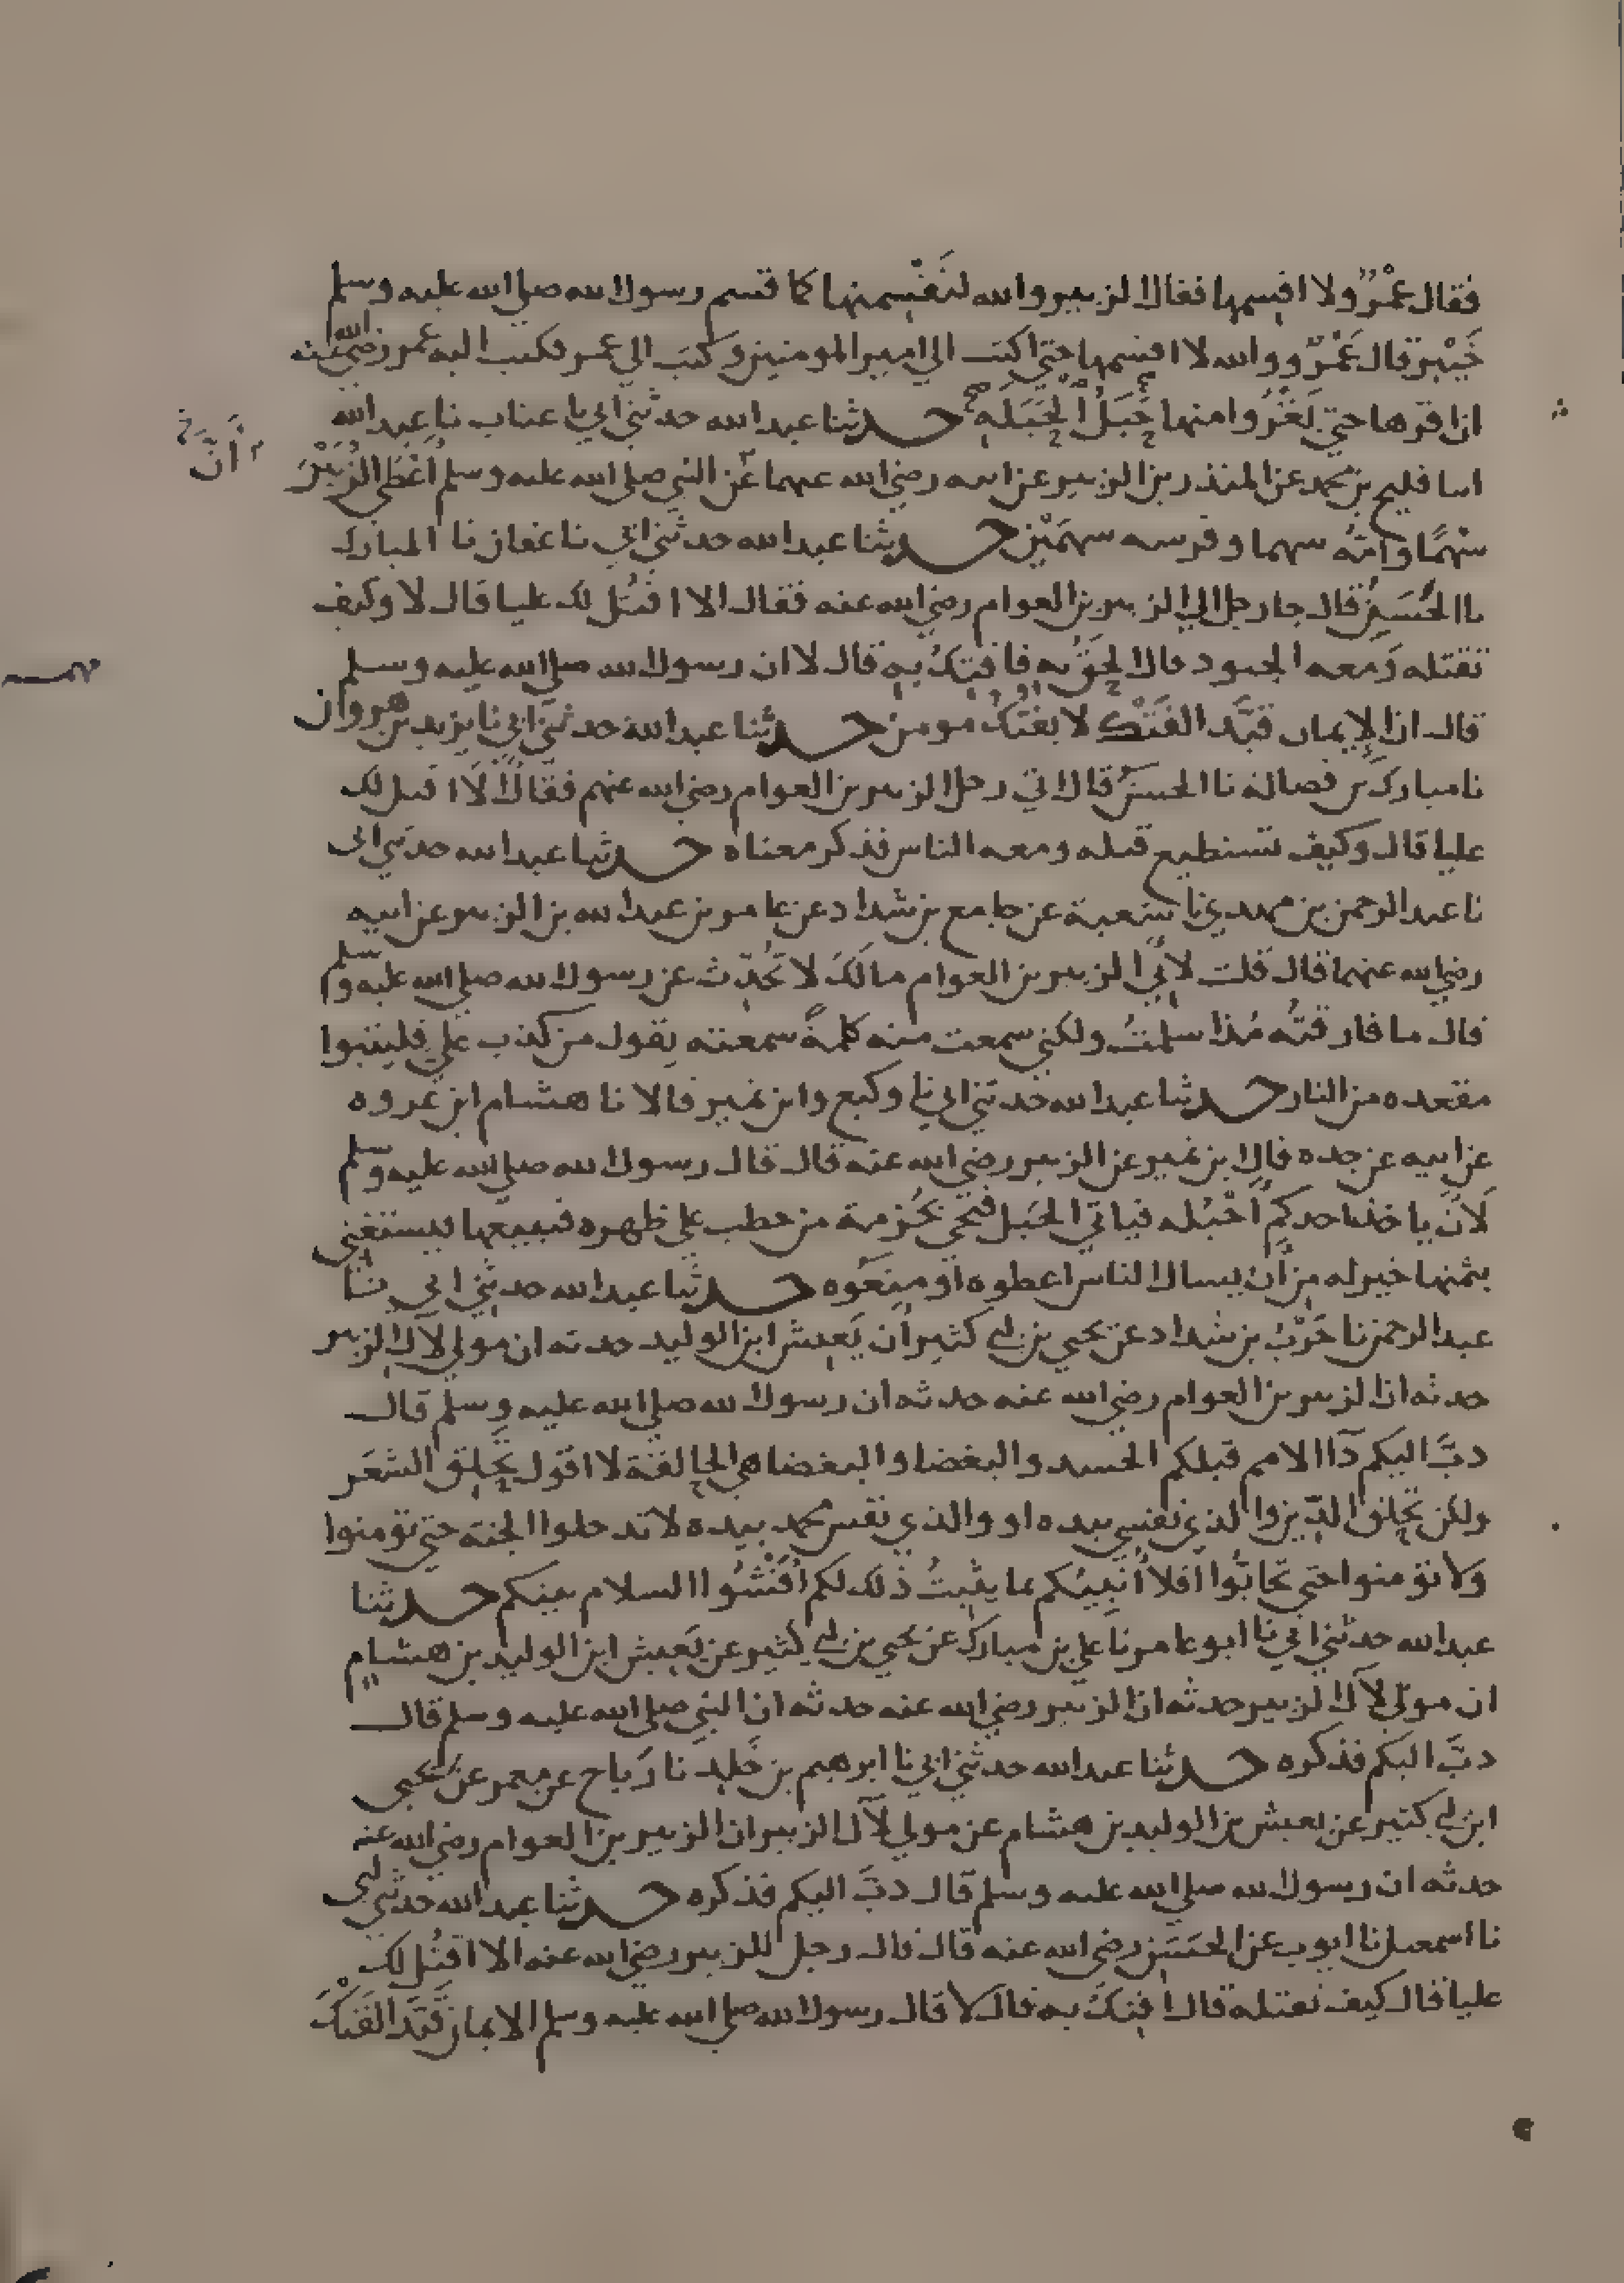 فقال عَمْرٌو لا اقسمها فقال الزبير والله لتَقْسِمنها كما قسم رسول الله صلى الله عليه وسلم
خَيْبر قال عَمْرٌو والله لا اقسمها حتى اكتب الى امير المومنين وكتبَ الى عمر فكتب اليه عمر رضي الله عنه
ان اقرها حتى يَغْزُوا منها حَبَلُ الحَبَلَةِ حدثنا عبد الله حدثني ابي نا عتاب نا عبد الله
انا فليح بن محمد عن المنذر بن الزبير عن ابيه رضي الله عنهما عن النبي صلى الله عليه وسلم اَعْطَى الزُبَيْرَ
اَنَّ
سَهْمًا وامَّه سهما وفرسه سهمَيْن حدثنا عبد الله حدثني ابي نا عفان نا المبارك
نا الحَسَن قال جا رجل الى الزبير بن العوام رضي الله عنه فقال الا اقتُل لك عليا قال لا وكيف
تقتله وَمعه الجنود قال اَلحَقُ به فافتِكُ بهِ قال لا ان رسول الله صلى الله عليه وسلم
قال ان الاِيمان قَيَّد الفَتْك لا يفتكُ مومن حدثنا عبد الله حدثني ابي نا يزيد بن هرون
نا مبارك بن فضالة نا الحسن قال اتى رجل الزبير بن العوام رضي الله عنهم فقال اَلَا اقتل لك
عليا قال وكيف تستطيع قتله ومعه الناس فذكر معناه حدثنا عبد الله حدثني ابي
نا عبد الرحمن بن مهدي نا شعبة عن جامع بن شداد عن عامر بن عبد الله بن الزبير عن ابيه
رضي الله عنهما قال قلت لاَبي الزبير بن العوام ما لَكَ لا تُحَدِّث عن رسول الله صلى الله عليه وسلم
قال ما فارقتُه مُنذ اسلمتُ ولكني سمعت منه كلمةً سمعته يقول من كذب علي فليتبوا
مقعده من النار حدثنا عبد الله حدثني ابي نا وكيع وابن نمير قالا نا هشام ابن عروه
عن ابيه عن جده قال ابن نمير عن الزبير رضي الله عنه قال قال رسول الله صلى الله عليه وسلم
لَاَنْ ياخذ احدكم اَحْبُله فياتي الجَبل فيجي بحُزمة من حطب على ظهره فيبيعها فيستغني
بثمنها خير له من اَن يسال الناس اعطوه اَو منعُوه حدثنا عبد الله حدثني ابي نا
عبد الرحمن نا حَرْبُ بن شداد عن يحيى بن ابي كثير اَن يَعِيش ابن الوليد حدثه ان مولى لآل الزبير
حدثه ان الزبير بن العوام رضي الله عنه حدثه ان رسول الله صلى الله عليه وسلم قال
دبَّ اليكم دَآ الامم قبلكم الحسد والبغضا والبغضا هي الحالقة لا اقول تَحْلِق الشعَر
ولكن تحلق الدِّين والذي نفسي بيده او والذي نفس محمد بيده لا تدخلوا الجنة حتى تومنوا
وَلا تومنوا حتى تحابُّوا افلا اُنَبِّيكُم بما يثبتُ ذلك لكم اَفْشُوا السلام بينكم حدثنا
عبد الله حدثني ابي نا ابو عامر نا علي بن مبارك عن يحيى بن ابي كثير عن يَعِيش ابن الوليد بن هشام
ان مولى لآل الزبير حدثه ان الزبير رضي الله عنه حدثه ان النبي صلى الله عليه وسلم قال
دبَّ اليكم فذكره حدثنا عبد الله حدثني ابي نا ابرهيم بن خَلِد نا رَباح عن معمر عن يحيى
ابن ابي كثير عن يعيش بن الوليد بن هشام عن مولى لآل الزبير ان الزبير بن العوام رضي الله عنه
حدثه ان رسول الله صلى الله عليه وسلم قال دبَّ اليكم فذكره حدثنا عبد الله حدثني ابي
نا اسمعيل نا ايوب عن الحسَن رضي الله عنه قال قال رجل للزبير رضي الله عنه الا اقتُل لك
عليا قال كيف تقتله قال اَفتِكُ به قال لا قال رسول الله صلى الله عليه وسلم الايمان قَيَّدَ الفَتْكَ